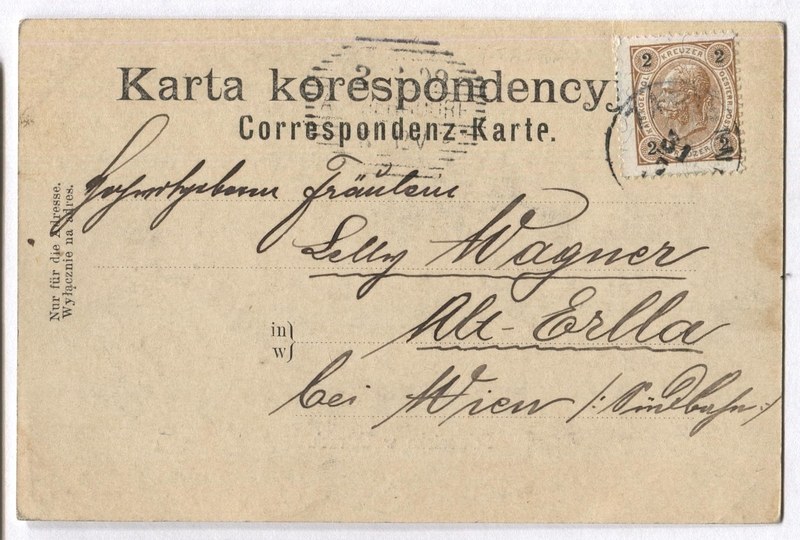 Karta korespondencyj
Correspondenz-Karte.
2 KREUZER 2
2 2
Nur für die Adresse.
Wyłącznie na adres.
Hochwohlgeboren Fräulein
Lelly Wagner
in
w
Alt-Erlla
bei Wien /: Südbahn :/